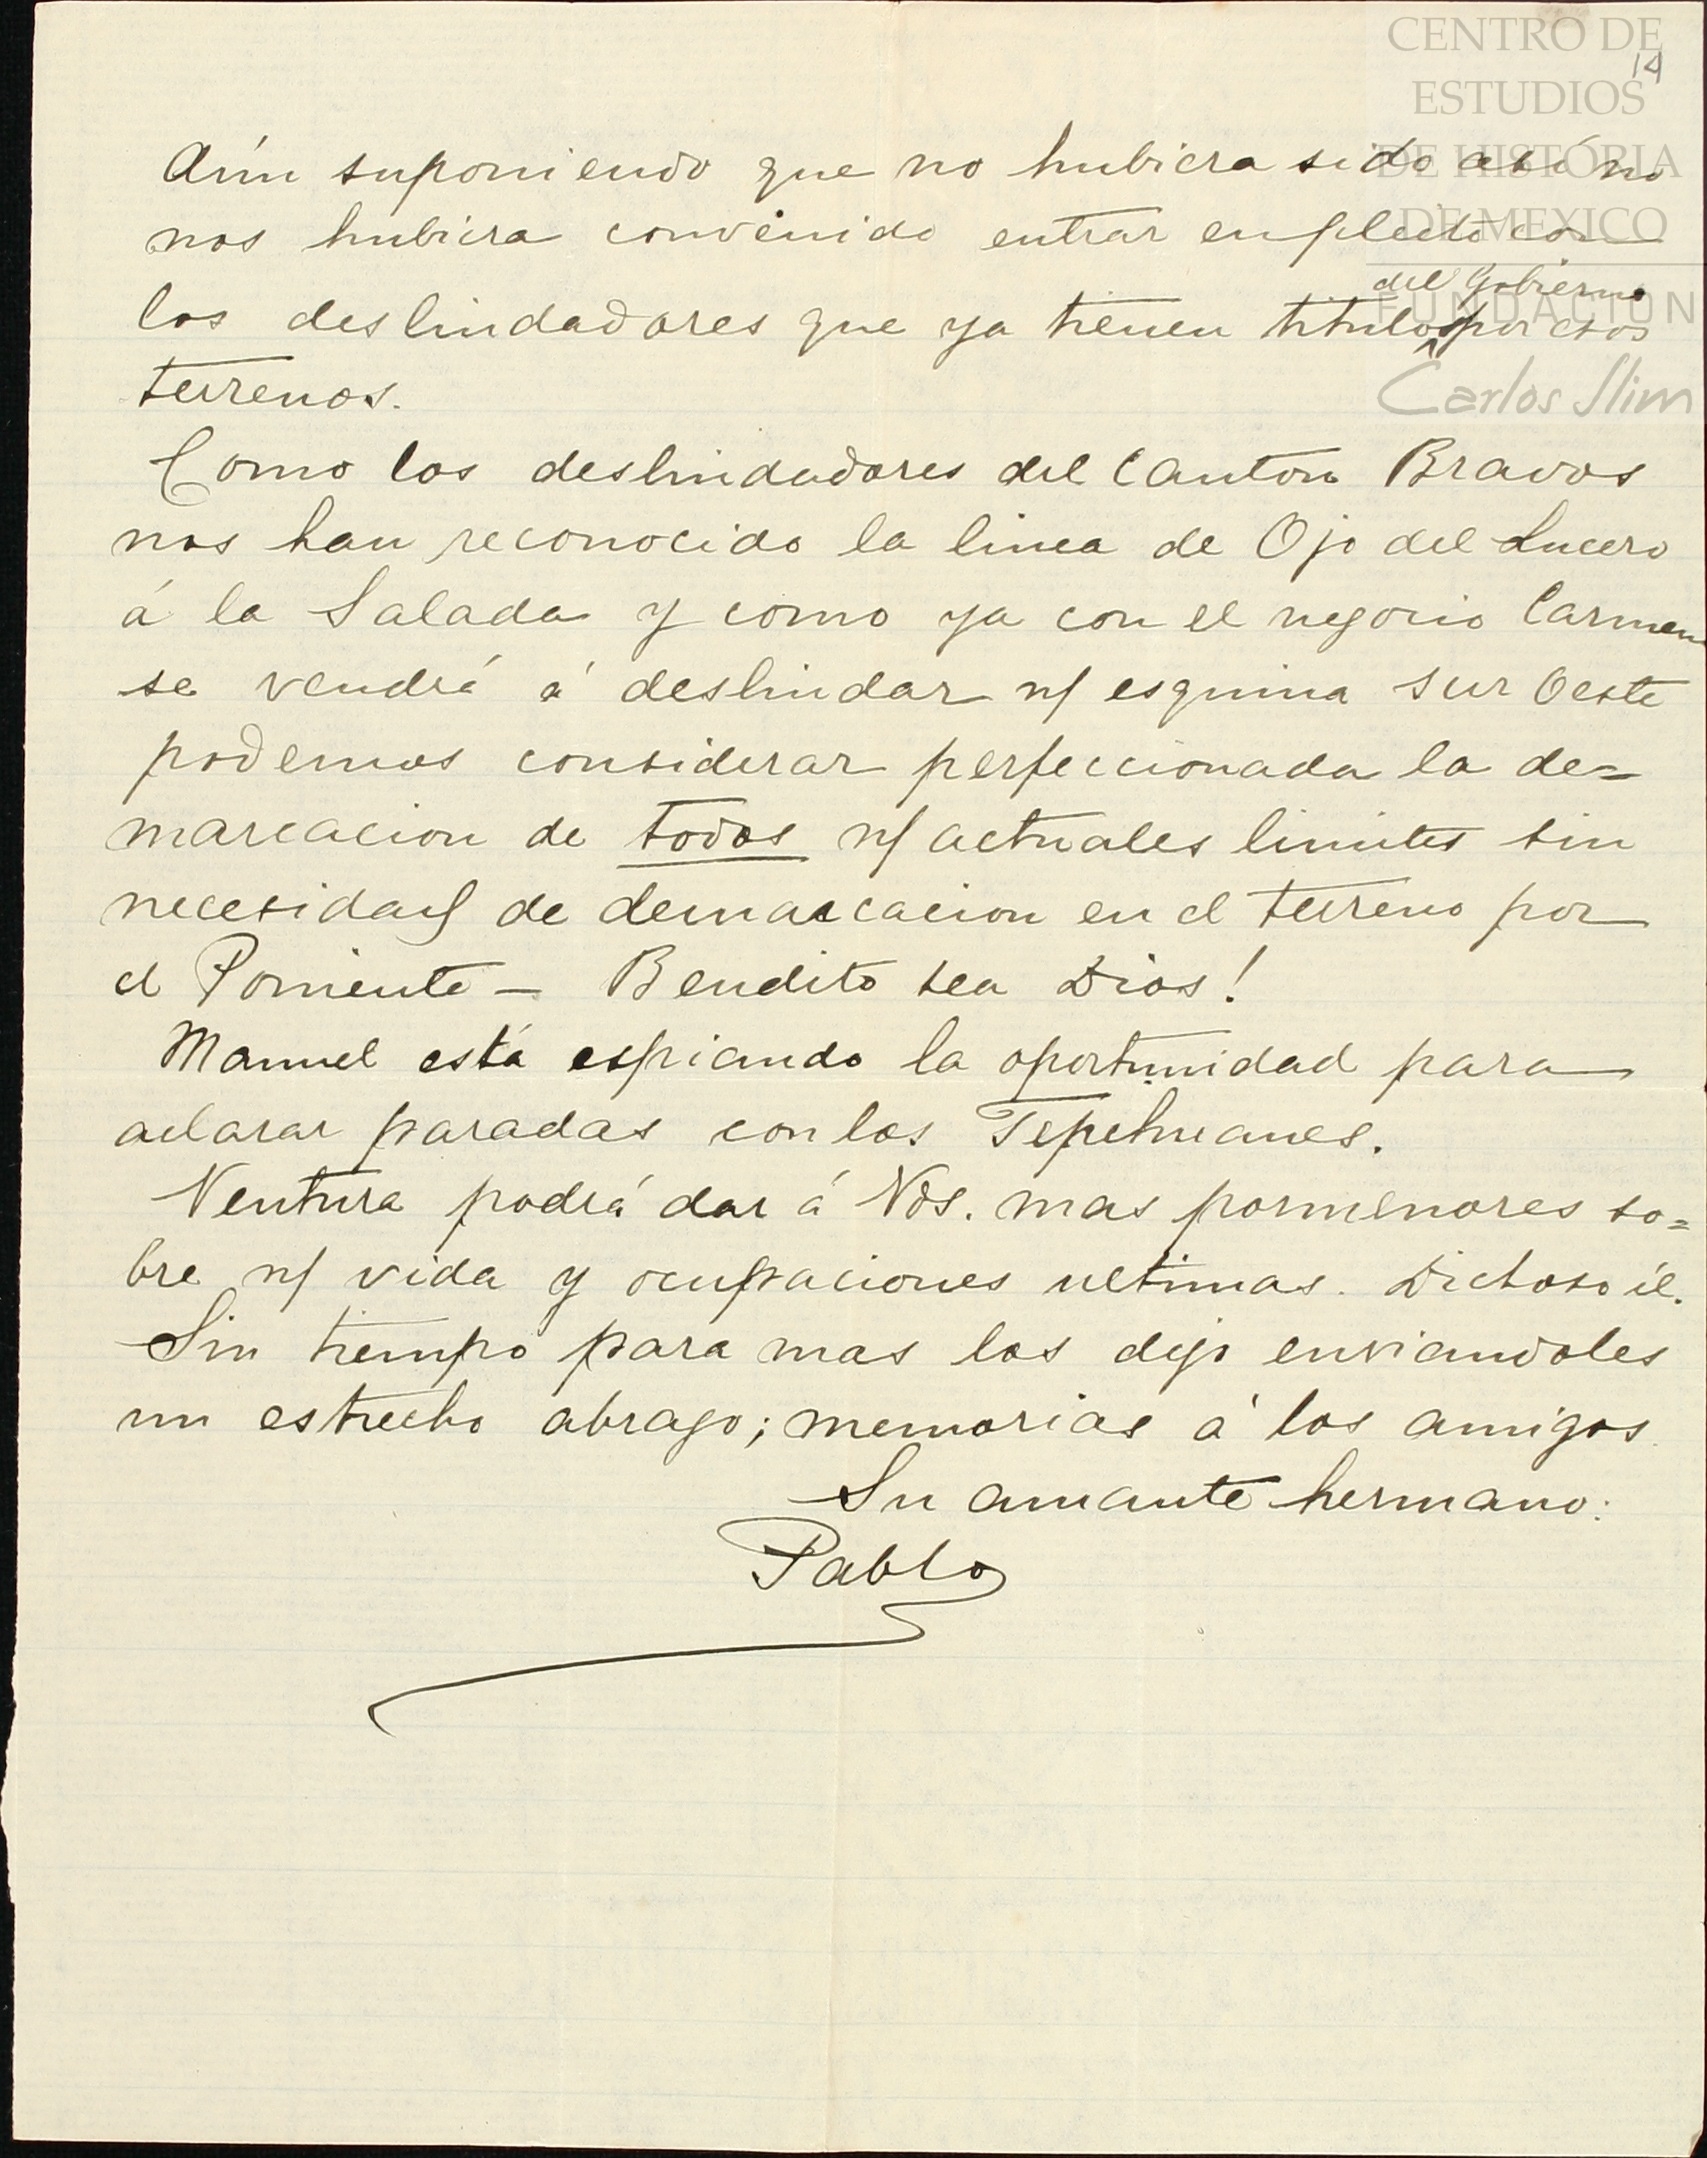 CENTRO DE
14
ESTUDIOS
DE HISTORIA
DE MEXICO
FUNDACION
Carlos Slim
Aún suponiendo que no hubiera sido así no
nos hubiera convenido entrar en pleito con
del Gobierno
los deslindadores que ya tienen titulos por esos
terrenos.
Como los deslindadores del Canton Bravos
nos han reconocido la linea de Ojo del Lucero
á la Salada y como ya con el negocio Carmen
se vendrá á deslindar n/ esquina sur Oeste
podemos considerar perfeccionada la de=
marcacion de todos n/ actuales limites sin
necesidad de demarcacion en el terreno por
el Poniente — Bendito sea Dios!
Manuel está espiando la oportunidad para
aclarar paradas con los Tepehuanes.
Ventura podrá dar á Vds. mas pormenores so=
bre n/ vida y ocupaciones ultimas. Dichoso él.
Sin tiempo para mas los dejo enviandoles
un estrecho abrazo; memorias á los amigos.
Su amante hermano:
Pablo